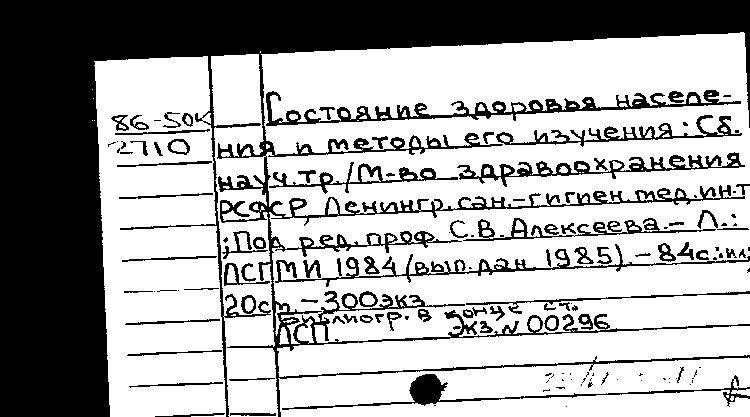 86-50К
2710
Состояние здоровья населе-
ния и методы его изучения: Сб.
науч.тр./М-во здравоохранения
РСФСР, Ленингр.сан.-гигиен.мед.ин-т
;Под ред.проф. С.В. Алексеева.- Л.:
ЛСГМИ, 1984 (вып.дан. 1985).- 84с.:ил;
20см.-300экз
Библиогр. в конце ст.
ДСП. Экз.N 00296